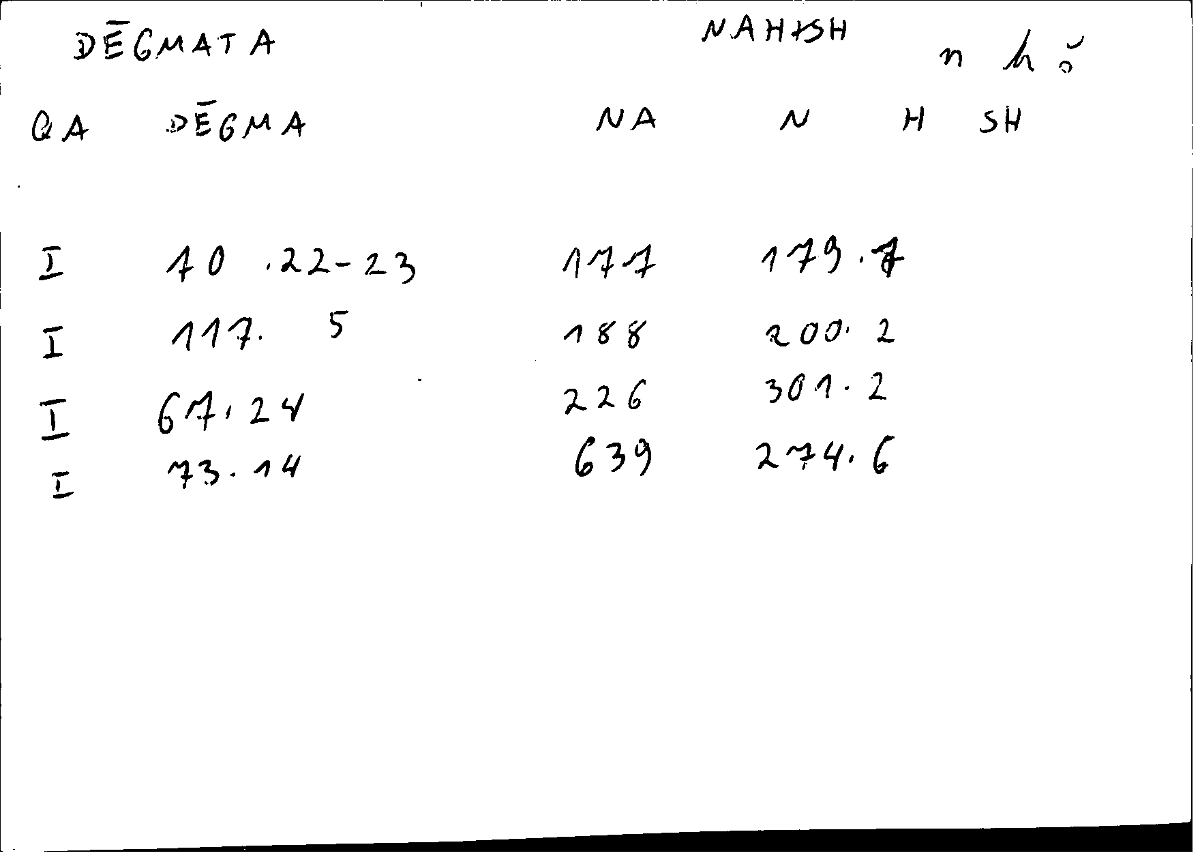 DĒGMATA NAHISH n h ŏ
QA DĒGMA NA N H SH
I 10 .22-23 177 179.7
I 117. 5 188 200.2
I 67.24 226 301.2
I 73.14 639 274.6